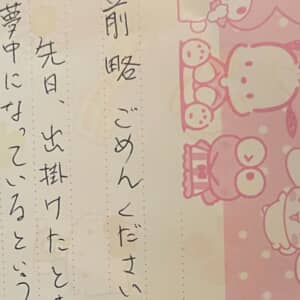 前略 ごめんください
先日、出掛けたと
夢中になっているという